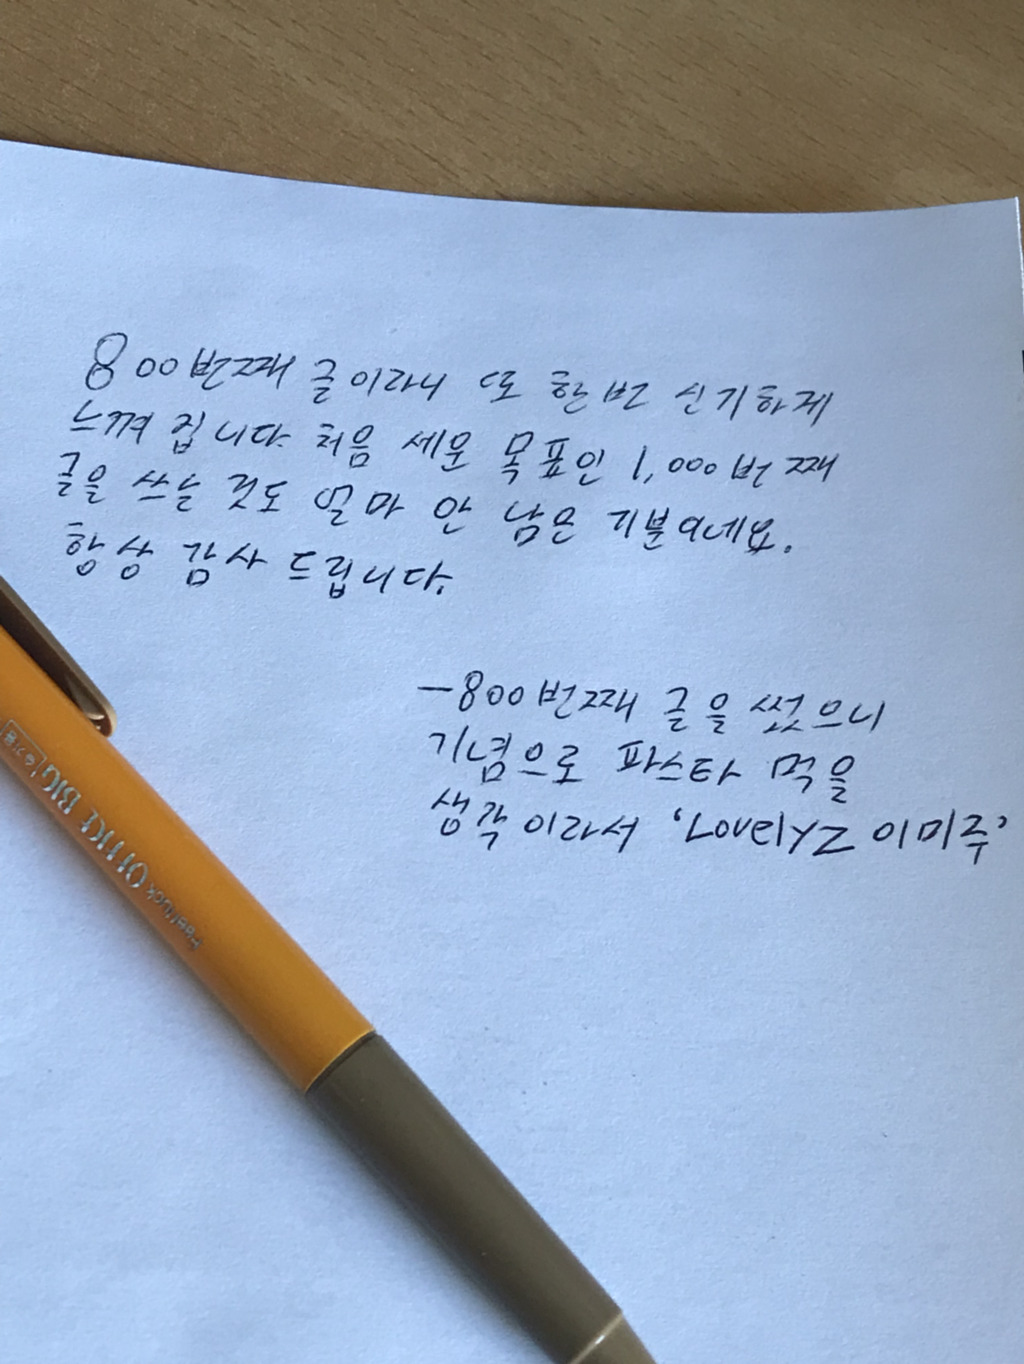 800번째 글이라니 또 한번 신기하게
느껴 집니다. 처음 세운 목표인 1,000번째
글을 쓰는 것도 얼마 안 남은 기분이네요.
항상 감사 드립니다.
-800번째 글을 썼으니
기념으로 파스타 먹을
생각이라서 'LovelYZ 이미주'
Peerluck OFFICE BIG 0.7